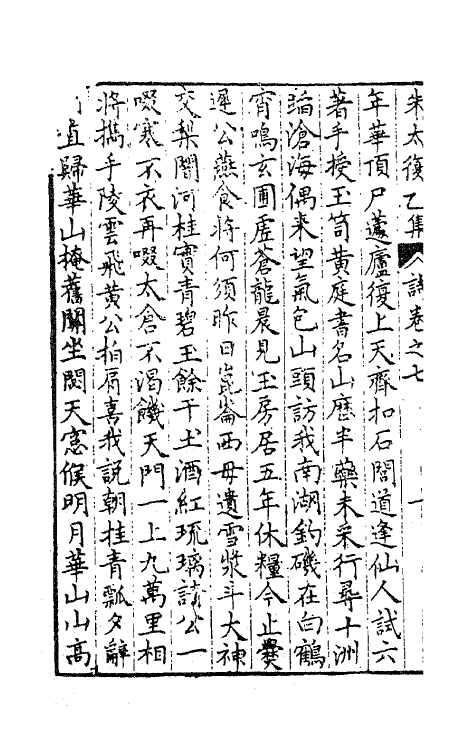 朱太復乙集 詩卷之七 一
年華頂尸蘧廬復上天齊扣石閭道逢仙人試六
著手授玉笥黃庭書名山歷半藥未采行尋十洲
蹈滄海偶來望氣色山頭訪我南湖釣磯在白鶴
宵鳴玄圃虛蒼龍晨見玉房居五年休糧今止爨
遲公燕食將何須昨日崑崙西母遺雪漿斗大神
交梨閬河桂實青碧玉餘干土酒紅琉璃請公一
啜寒不衣再啜太倉不渴饑天門一上九萬里相
將攜手陵雲飛黃公拍肩喜我說朝挂青瓢夕辭
直歸華山掩舊關坐閱天窓候明月華山山高